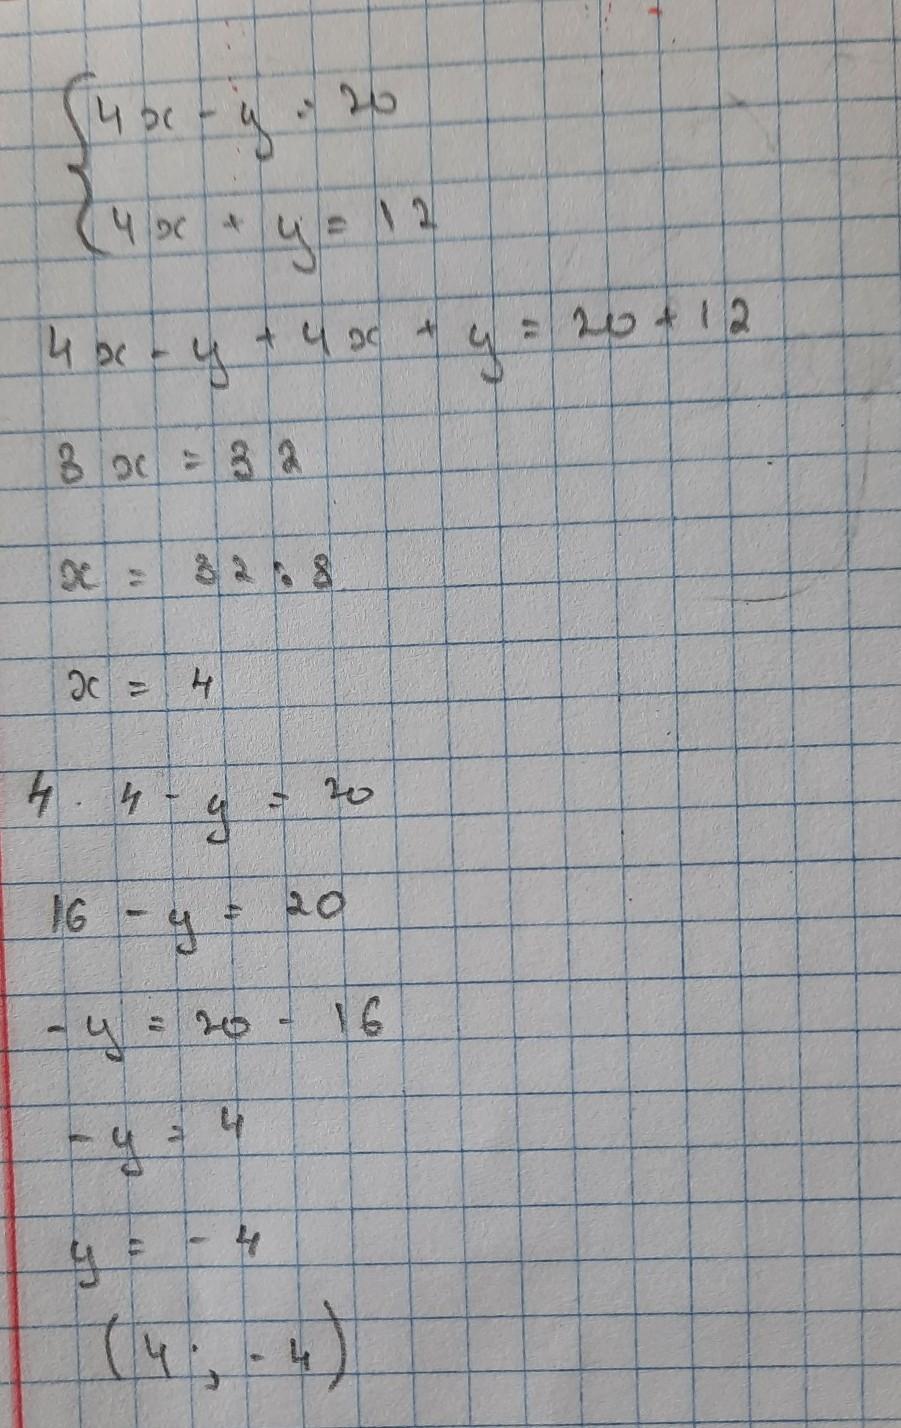 {4x - y = 20
4x + y = 12
4x - y + 4x + y = 20 + 12
8x = 32
x = 32 : 8
x = 4
4 · 4 - y = 20
16 - y = 20
-y = 20 - 16
-y = 4
y = -4
(4 ; -4)